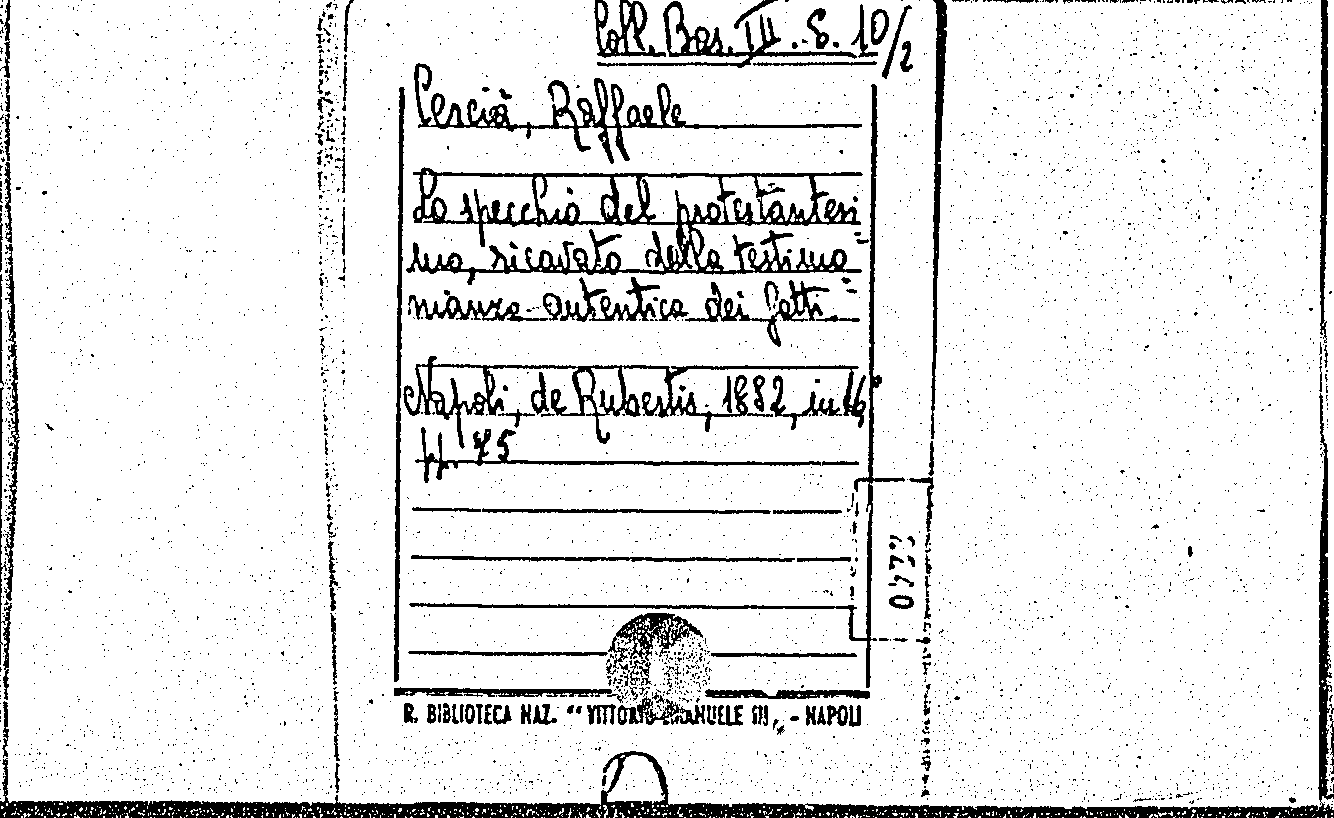 Coll. Bos. III. S. 10/2
Cercià, Raffaele
Lo specchio del protestantesi
mo, ricavato dalla testimo=
nianza autentica dei fatti.
Napoli, de Rubertis, 1882, in 16°
pp. 75
R. BIBLIOTECA NAZ. “VITTORIO EMANUELE III„ - NAPOLI